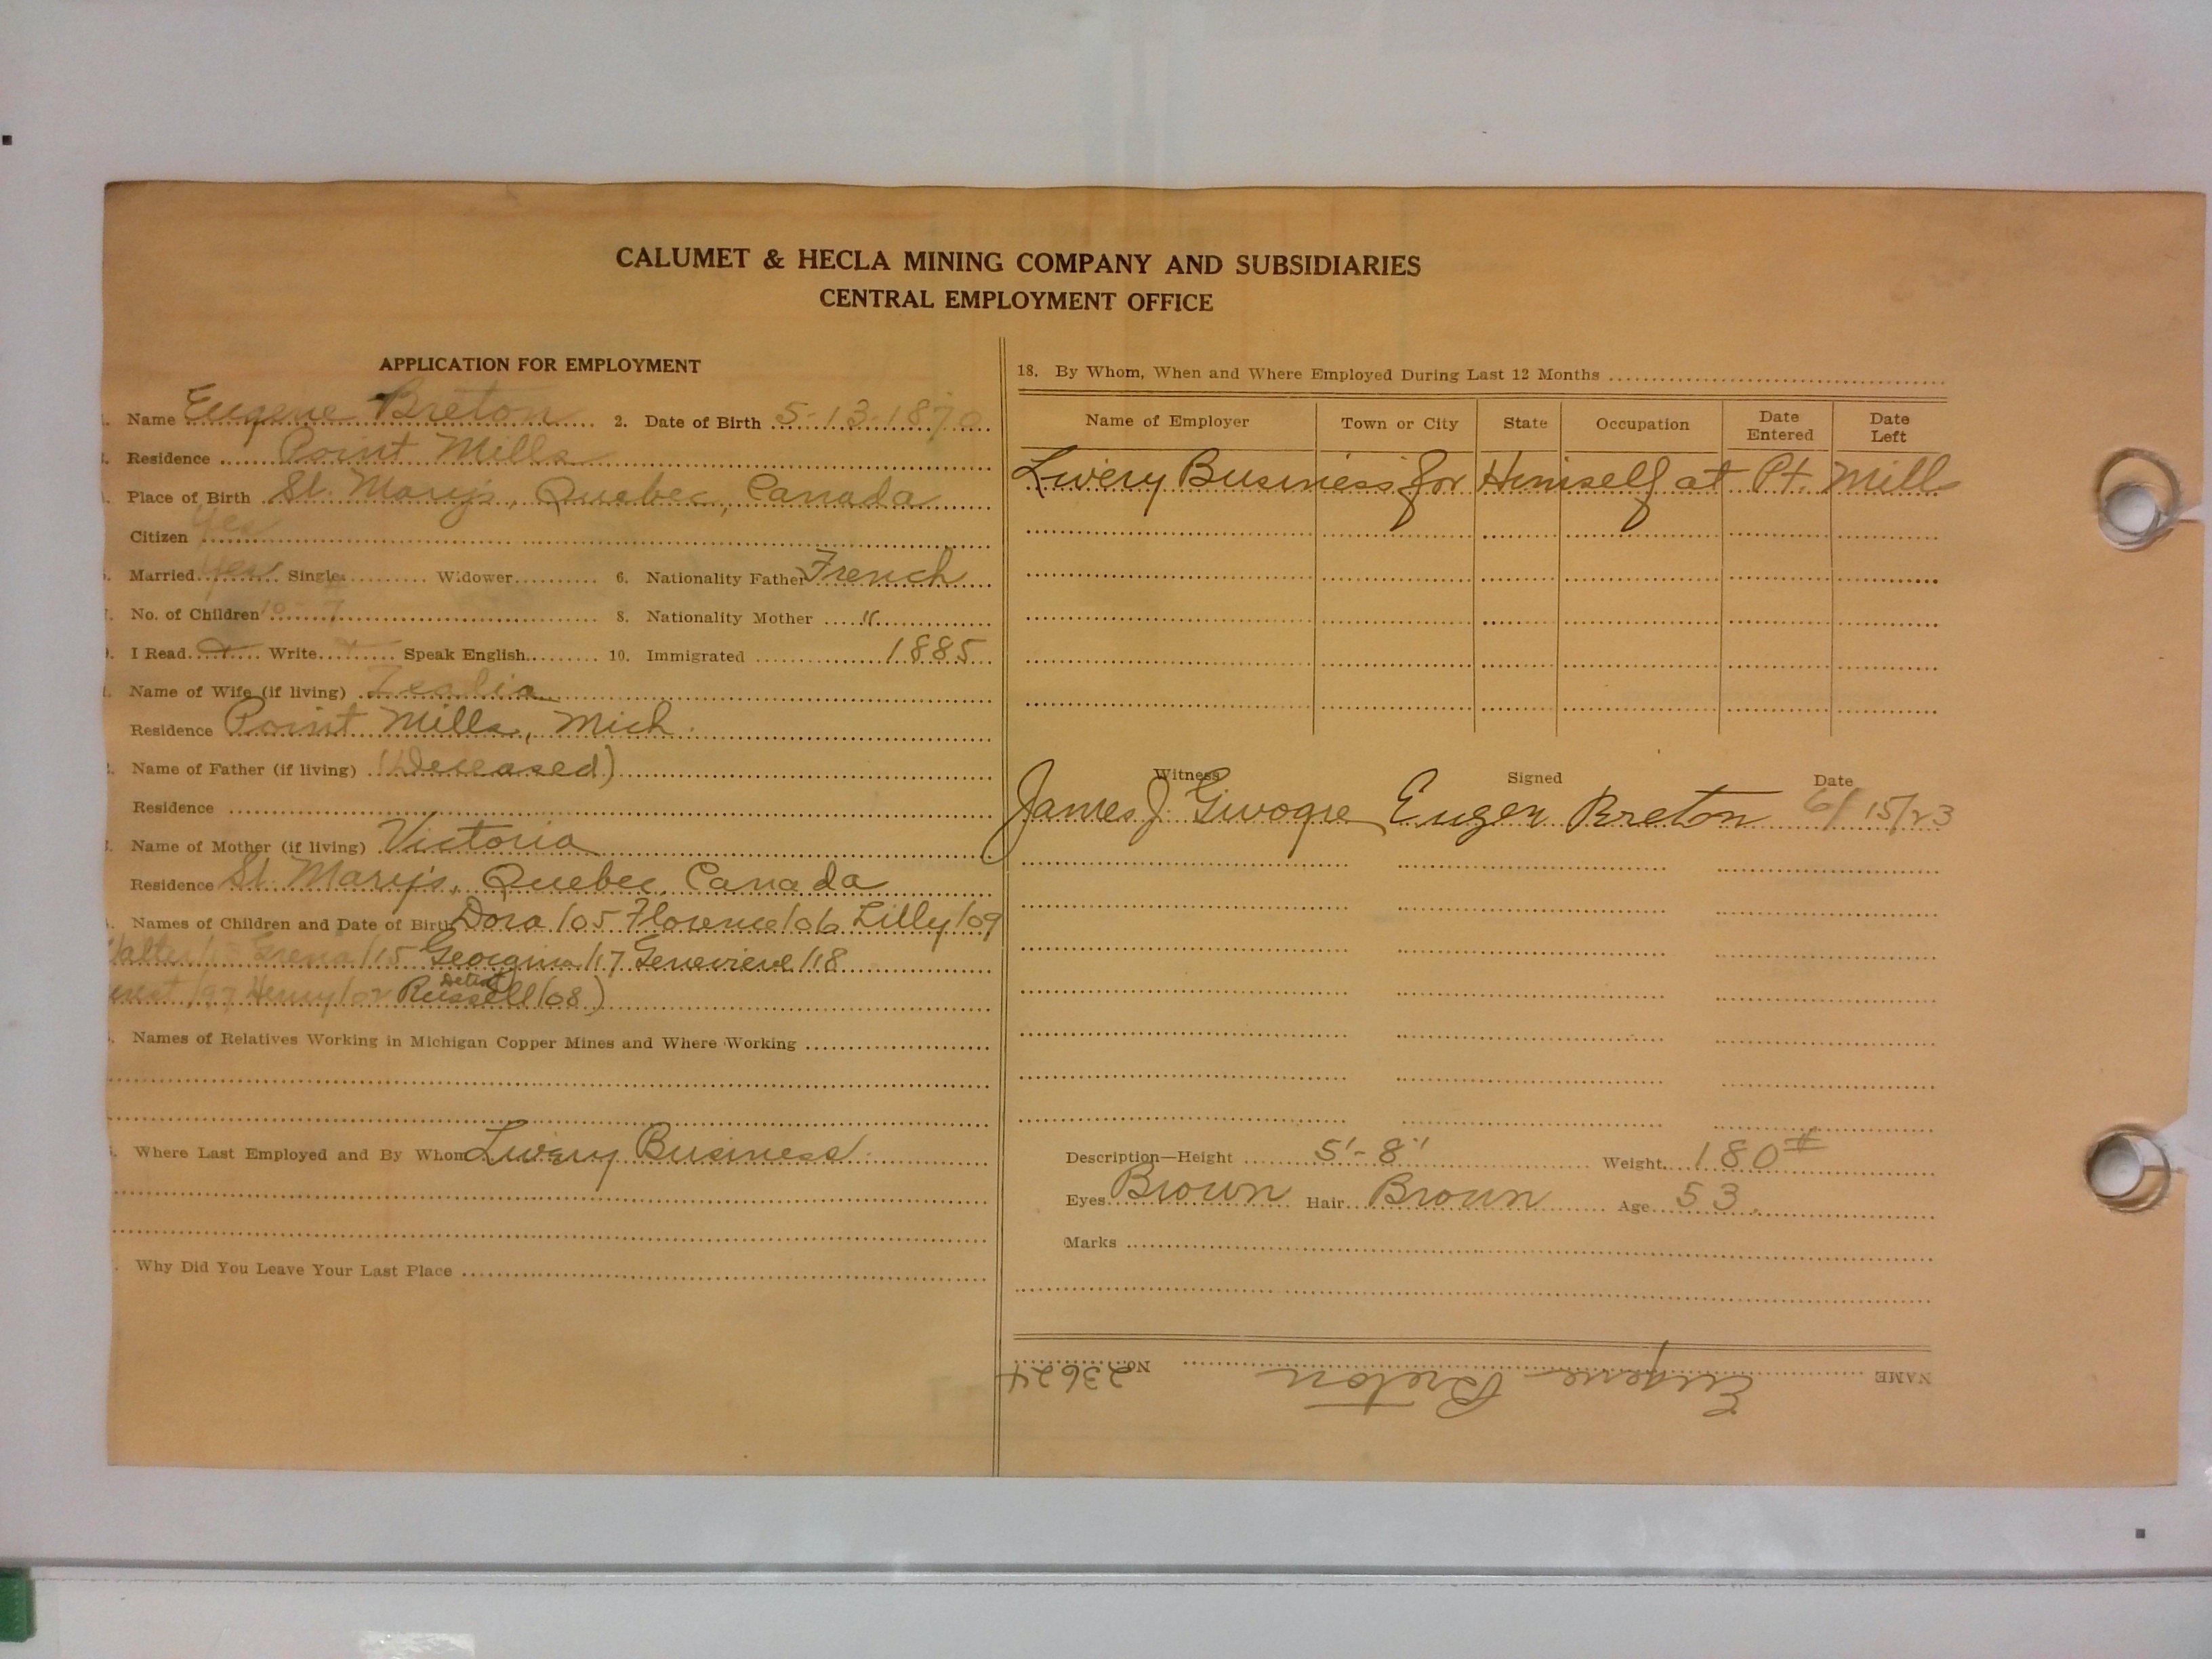 CALUMET & HECLA MINING COMPANY AND SUBSIDIARIES
CENTRAL EMPLOYMENT OFFICE
APPLICATION FOR EMPLOYMENT
Name Eugene Breton 2. Date of Birth 5-13-1870
Residence Point Mills
Place of Birth St. Mary's, Quebec, Canada
Citizen Yes
Married Yes Single Widower 6. Nationality Father French
No. of Children 10-7 8. Nationality Mother "
I Read x Write x Speak English 10. Immigrated 1885
Name of Wife (if living)
Residence Point Mills, Mich.
Name of Father (if living) (Deceased)
Residence
Name of Mother (if living) Victoria
Residence St. Mary's, Quebec, Canada
Names of Children and Date of Birth Dora/05 Florence/06 Lilly/09
/15 Georgina/17 Genevieve/18
/97 Henry/02 Russell/08)
Names of Relatives Working in Michigan Copper Mines and Where Working
Where Last Employed and By Whom Livery Business
Why Did You Leave Your Last Place
18. By Whom, When and Where Employed During Last 12 Months
Name of Employer Town or City State Occupation Date Entered Date Left
Livery Business for Himself at Pt. Mill
Witness Signed Date
James J. Eugen Breton 6/15/23
Description—Height 5'-8" Weight 180#
Eyes Brown Hair Brown Age 53
Marks
NAME Eugene Breton No. 23624